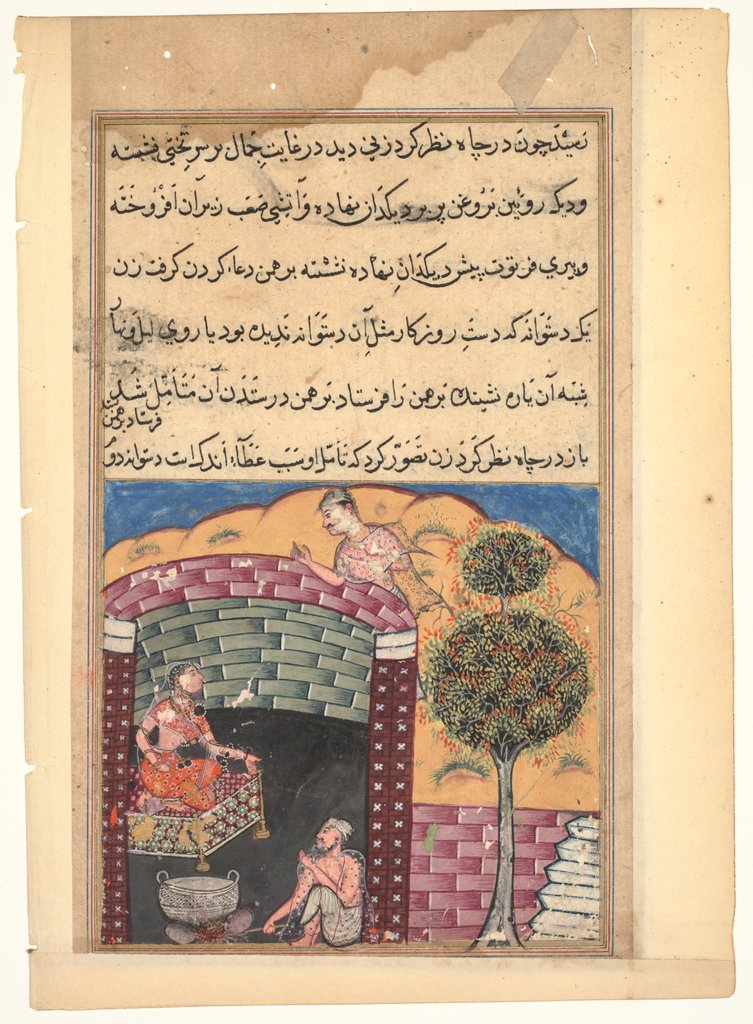 رسید چون در چاه نظر کرد زنی دید در غایت جمال بر سر تختی نشسته
و دیک رویین پر روغن بر دیکدان نهاده و آتشی صعب زیر آن افروخته
و پیری فرتوت پیش دیکدان نهاده نشسته برهمن دعا کردن کرفت زن
یک دستوانه که دست روزکار مثل آن دستوانه ندیده بود یا روی لیل و نهار
شبه آن یاره نشنیده برهمن را فرستاد برهمن در ستدن آن متأمل شد
فرستاد برهمن
باز در چاه نظر کرد زن تصور کرد که تأمل او سبب عطاء اندک است دستوانه دوم